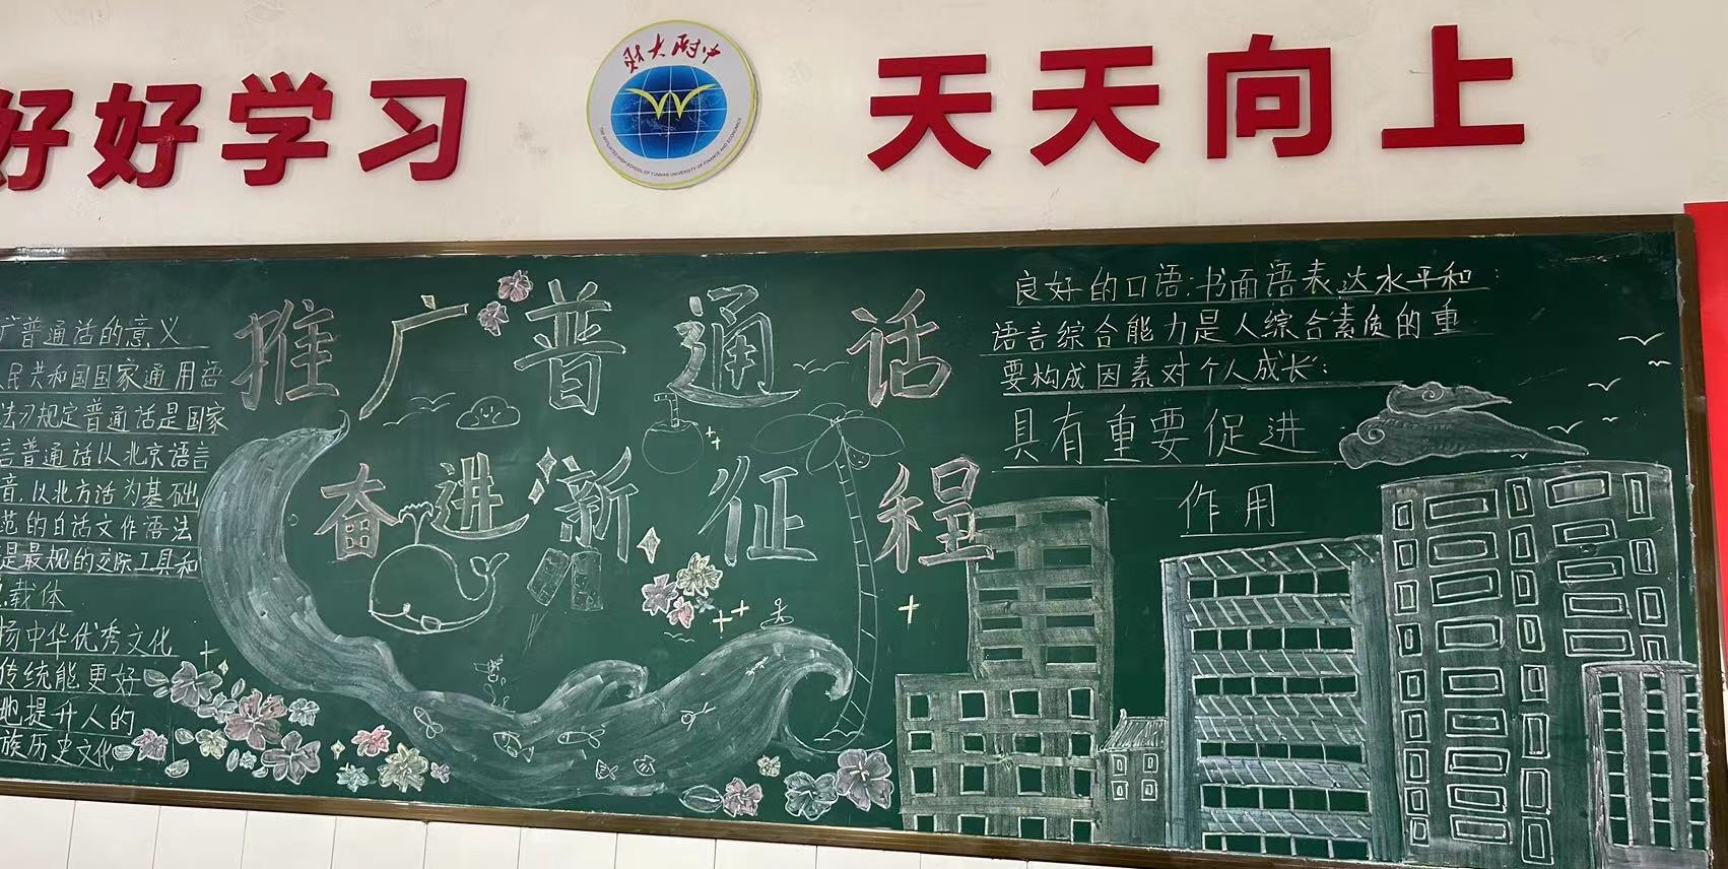 好好学习
财大附中
THE AFFILIATED HIGH SCHOOL OF YUNNAN UNIVERSITY OF FINANCE AND ECONOMICS
天天向上
广普通话的意义
人民共和国国家通用语
法》规定普通话是国家
言普通话以北京语言
音,以北方话为基础
范的白话文作语法
是最规的交际工具和
载体
扬中华优秀文化
传统能更好
地提升人的
族历史文化
推广普通话
奋进新征程
良好的口语:书面语表达水平和
语言综合能力是人综合素质的重
要构成因素对个人成长:
具有重要促进
作用